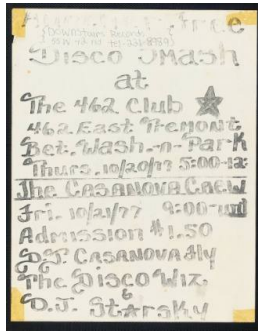 free
Disco Smash
at
The 462 Club
462 East Tremont
Bet. Wash.-n-Park
Thurs. 10/20/77 5:00-12
The CASANOVA CREW
Fri. 10/21/77 9:00-
Admission $1.50
D.J. CASANOVA fly
The Disco Wiz,
&
D.J. StarSky